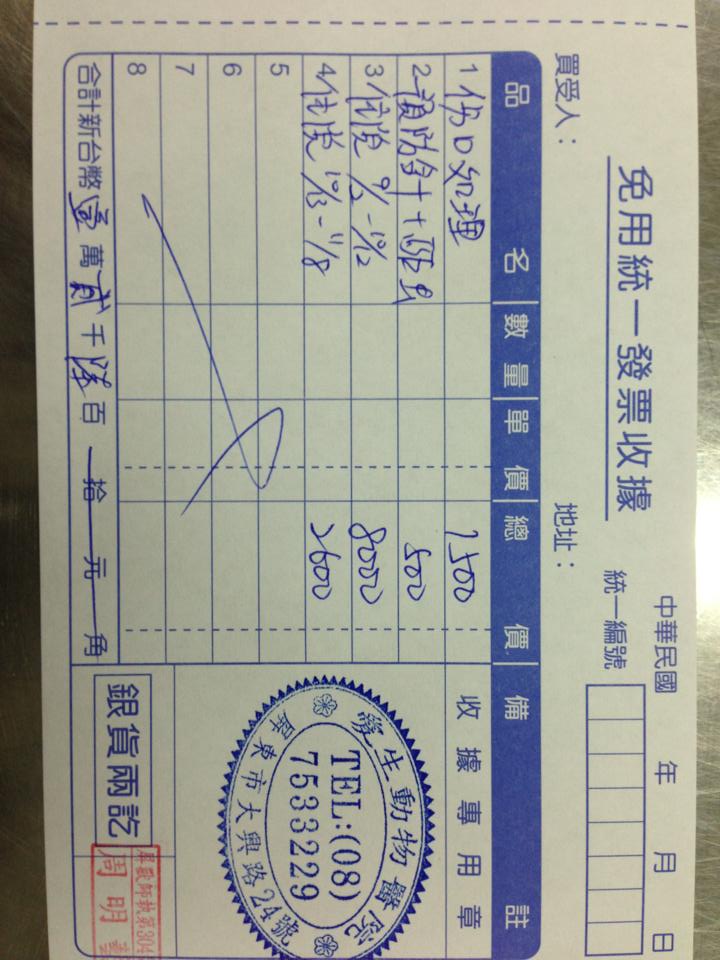 免用統一發票收據
中華民國 年 月 日
統一編號
買受人：
地址：
品名 數量 單價 總價 備註
1 傷口処理 1500
2 預防針+驅虫 500
3 住院 9/2-10/2 8000
4 住院 10/3-11/8 2600
5
6
7
8
合計新台幣壹萬貳千陸百拾元角
收據專用章
愛生動物醫院
TEL:(08)
7533229
屏東市大興路24號
銀貨兩訖
周明